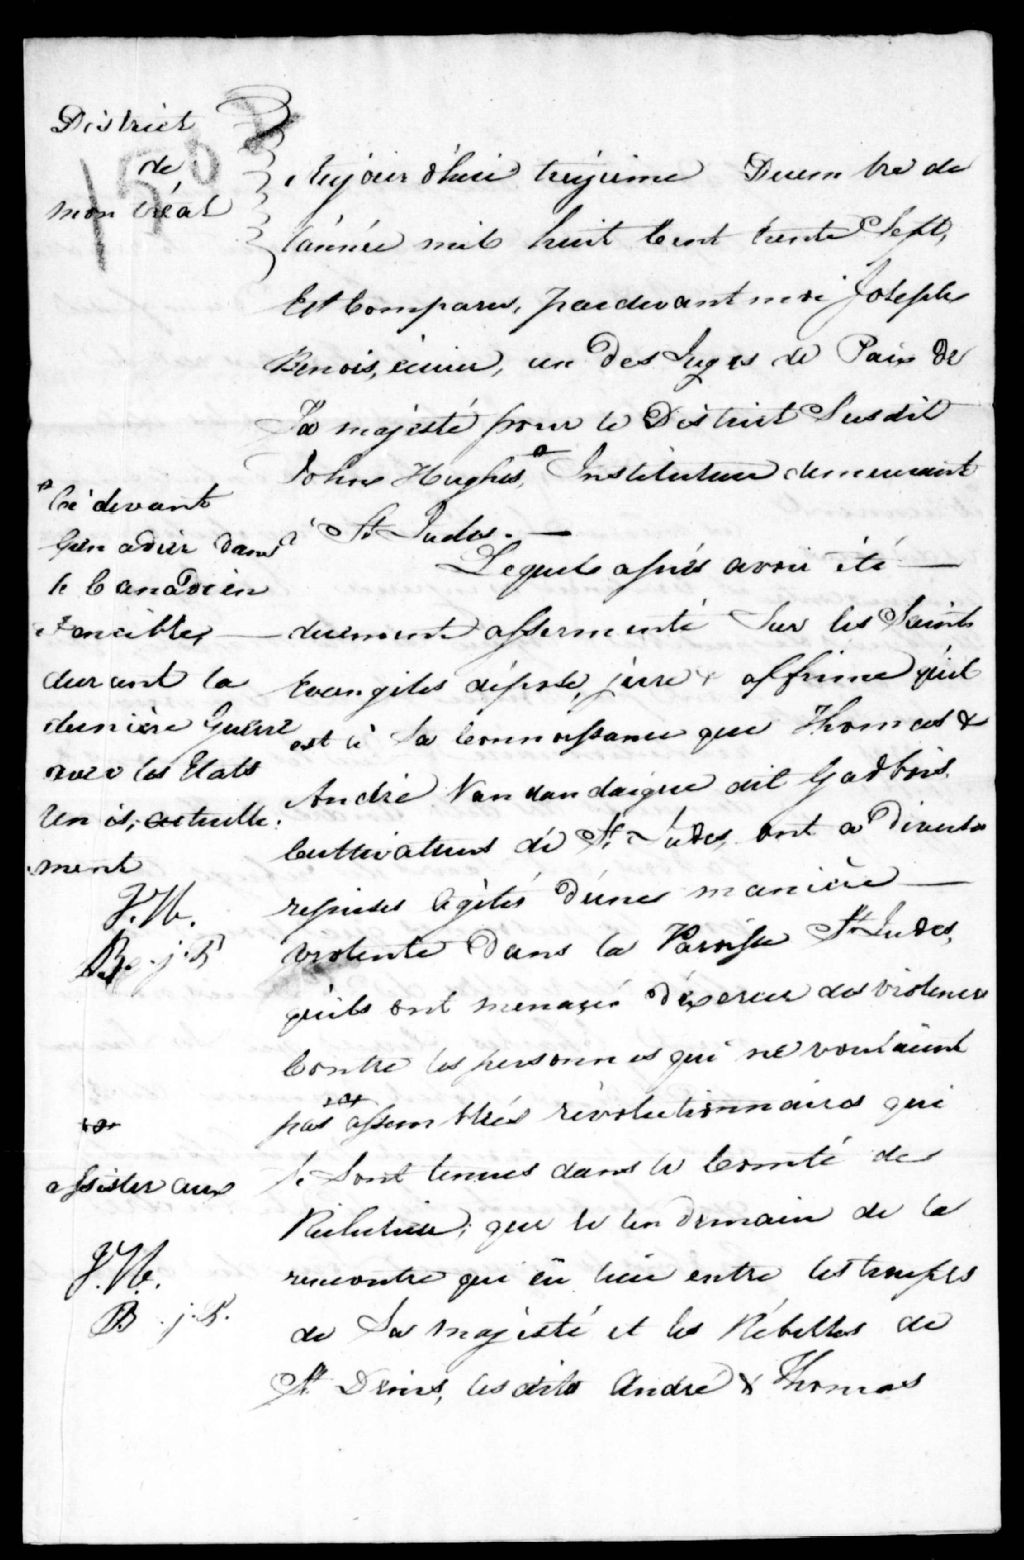 District
de
montréal
1502
Aujour d'hui treizieme Decembre de
l'année mil huit Cent trente Sept,
Est Comparu, pardevant moi Joseph
Benois, écuier, un Des Juges de Paix De
Sa majesté pour le District Susdit
John Hughes, # Instituteur demeurant
à St Judes. —
# Ci devant
Grenadier dans
le Canadien
Fencibles —
durant la
dernière Guerre
avec les Etats
Unis, actuelle-
ment
J. H.
B. j. P.
Lequel après avoir été —
duement assermenté Sur les Saints
Evangiles dépose, jure & affirme qu'il
est à Sa Connoissance que Thomas &
André Vandandaigue dit Gadbois
Cultivateurs de St Judes, ont a Diverses
reprises Agités D'une manière —
violente Dans la Paroisse St Judes,
qu'ils ont menaçés D'éxercer des violences
Contre les personnes qui ne voulaient
pas assemblées révolutionnaires qui
assister aux
J. H.
B. j. P.
Se Sont tenues dans le Comté de
Richelieu; que le lendemain de la
rencontre qui eu lieu entre les troupes
de Sa Majesté et les Rébelles de
St Denis, les dits André & Thomas